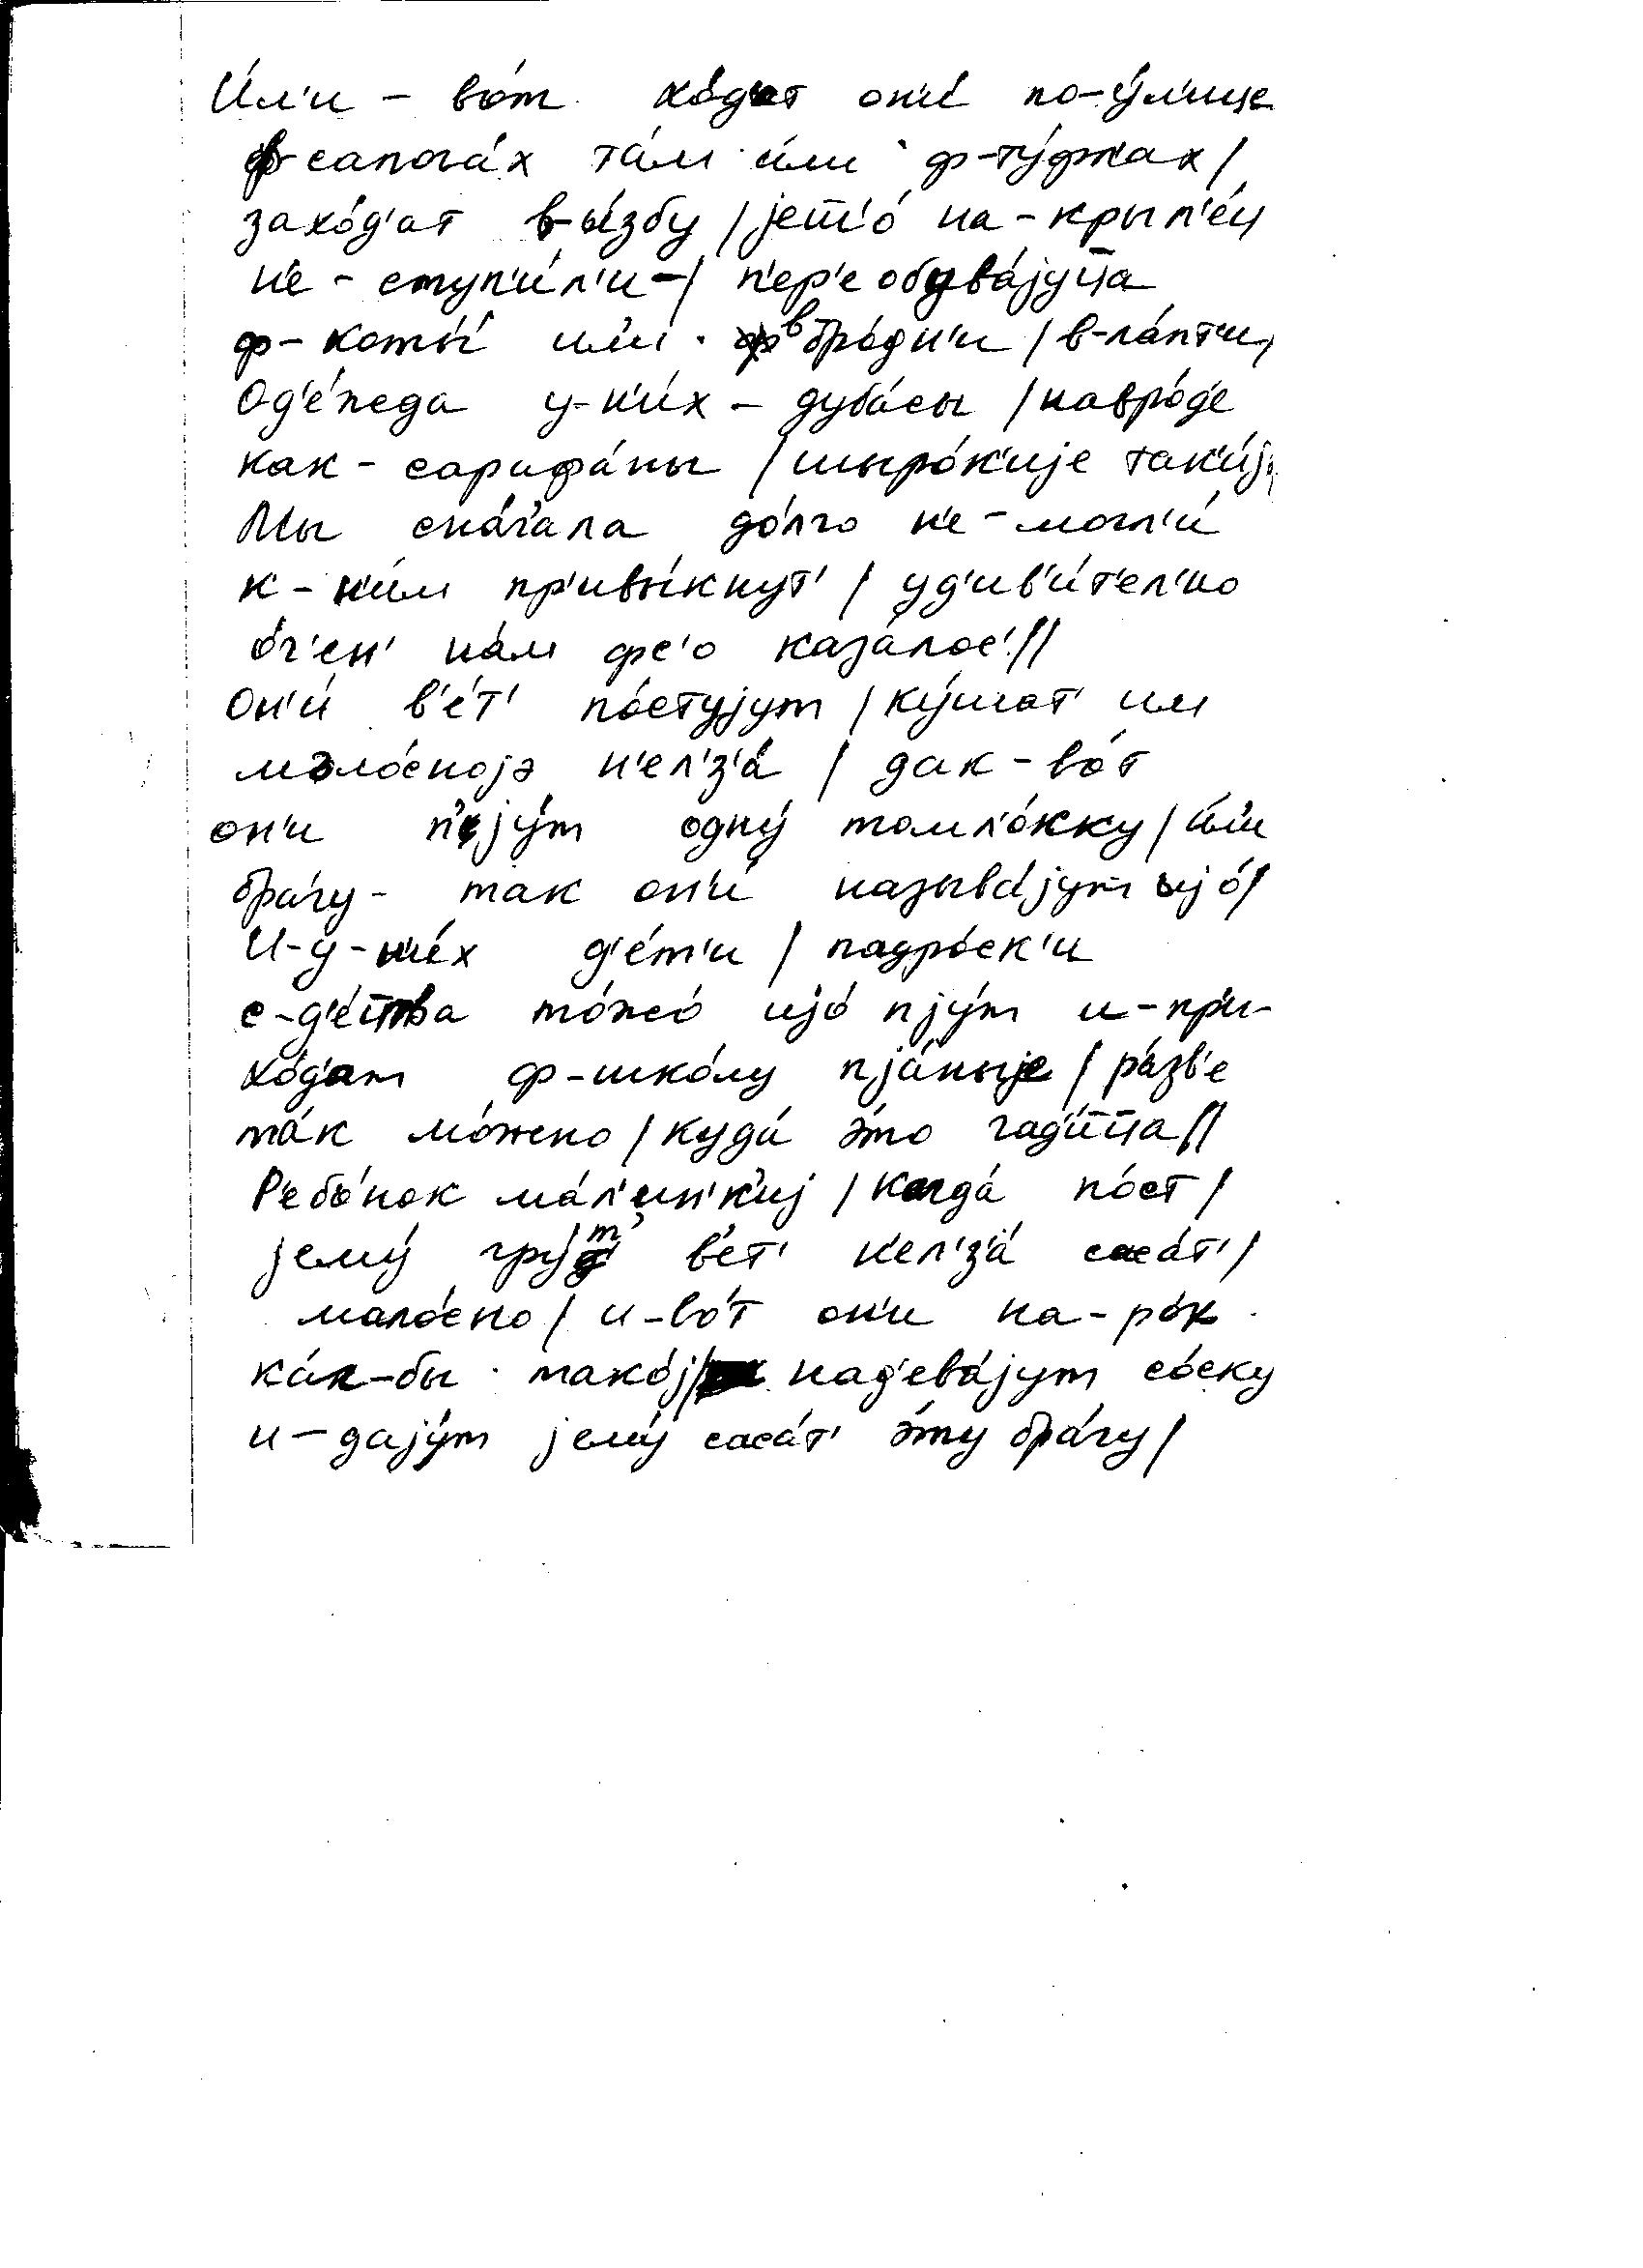 И́л'и – во́т хо́д'ат он'и́ по-у́л'ице
ф-сапога́х та́м и́л'и ф-ту́фл'ах /
захо́д'ат в-ы́збу / јешʼо́ на-крыл'е́ц
н'е-ступ'и́л'и – / п'ер'еобува́јуца
ф-коты́ ил'и в бро́дн'и / в-ла́пт'и /
Од'е́жда у-н'и́х – дуба́сы / навро́д'е
как-сарафа́ны / шыро́к'ије так'и́је
Мы снач'а́ла до́лго н'е-могл'и́
к-н'и́м пр'ивы́кнут' / уд'ив'и́т'ел'но
о́ч'ен' на́м фс'о каза́лос' //
Он'и́ в'е́т' по́стујут / ку́шат' им
моло́сноје н'ел'з'а́ / дак-во́т
он'и п'јýт одну́ томл'о́жку / и́л'и
бра́гу – так он'и́ называ́јут ијо́ /
И-у-н'и́х д'е́т'и / падро́ск'и
с-д'е́цтва то́жо ијо́ пју́т и-пр'и-
хо́д'ат ф-шко́лу пја́ныје / ра́зв'е
та́к мо́жно / куда́ э́то гад'и́ца //
Р'ебо́нок ма́л'ин'к'иј / када́ по́ст /
јему́ гру́т' в'ет' н'ел'з'а́ саса́т' /
мало́сно / и-во́т он'и на-ро́к
ка́к-бы тако́ј / над'ева́јут со́ску
и-даjу́т јему́ саса́т' э́ту бра́гу /